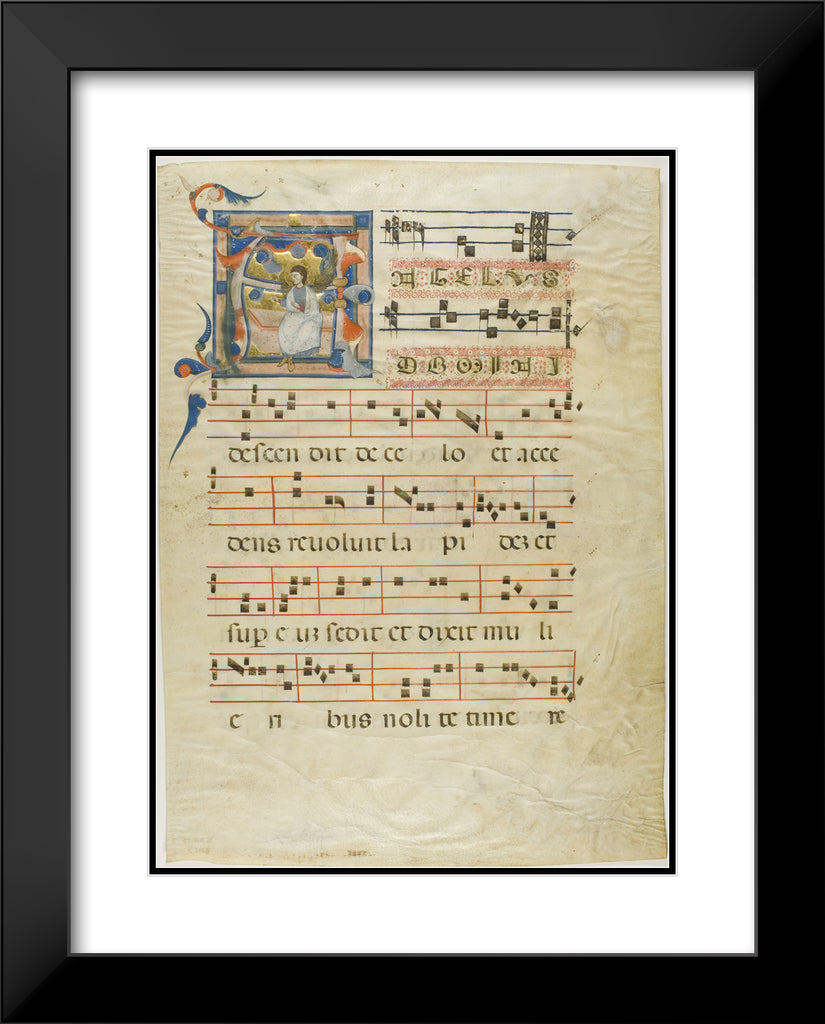 AGELVS
DOMINI
descen dit de ce lo et acce
dens revoluit la pi dez et
sup e uz sedit et dixit mu li
e ri bus noli te time re